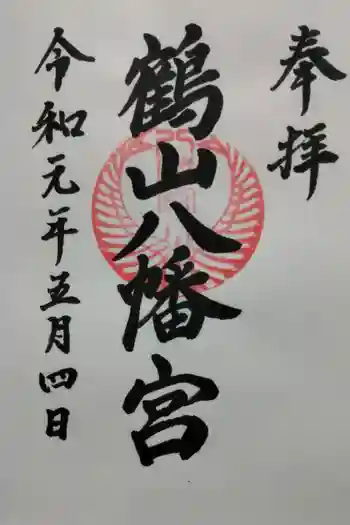 奉拝
鶴山八幡宮
令和元年五月四日